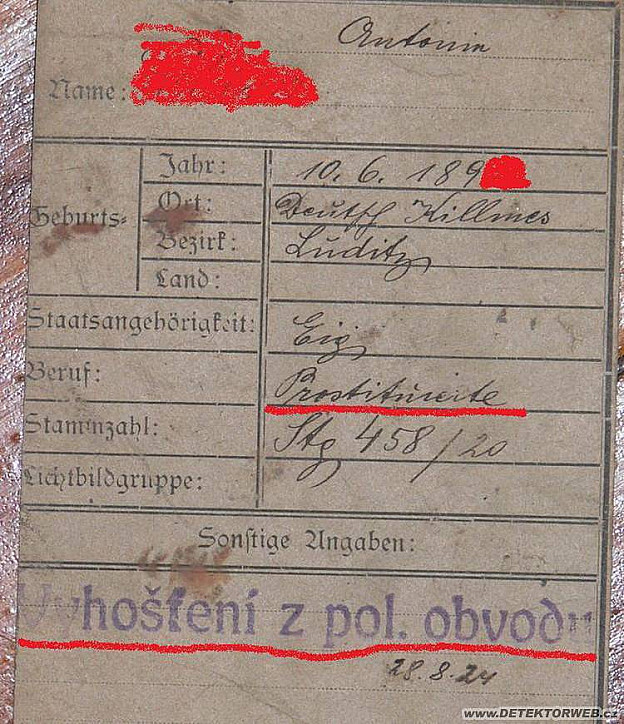 Antonin
Name:
Jahr: 10. 6. 189
Geburts-
Ort: Deutsch Killmes
Bezirk: Luditz
Land:
Staatsangehörigkeit: Eig
Beruf: Prostituierte
Stammzahl: Stg 458/20
Lichtbildgruppe:
Sonstige Angaben:
Vyhoštění z pol. obvodu
28.8.24
WWW.DETEKTORWEB.CZ